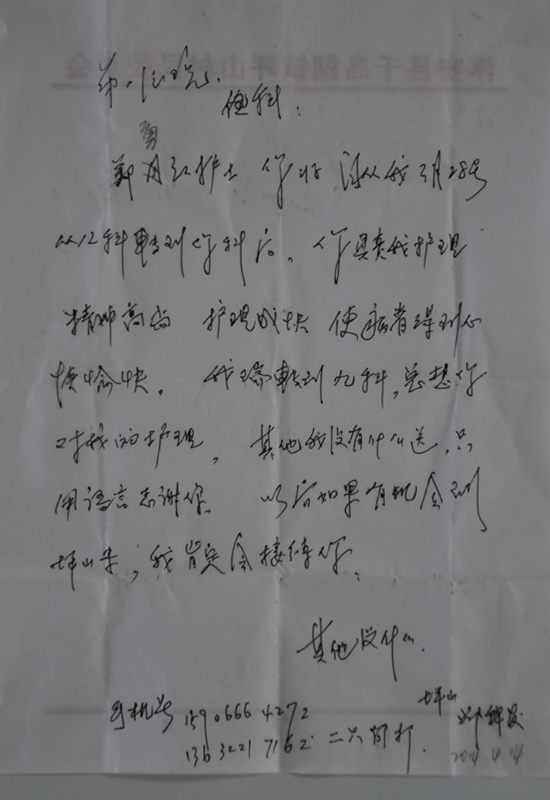 第一医院
伍科：
郑勇红护士 你好 自从我3月28号
从12科转到你科后。你是负责我护理
精神高尚 护理成快 使病者得到心
情愉快。 我现转到九科，总想你
对我的护理， 其他我没有什么送，只
用语言志谢你 以后如果有机会到
坪山来，我肯定会接待你。
其他没什么.
手机号 1590666 4272 坪山
136 3221 7162 二只可打. 2014.4.14